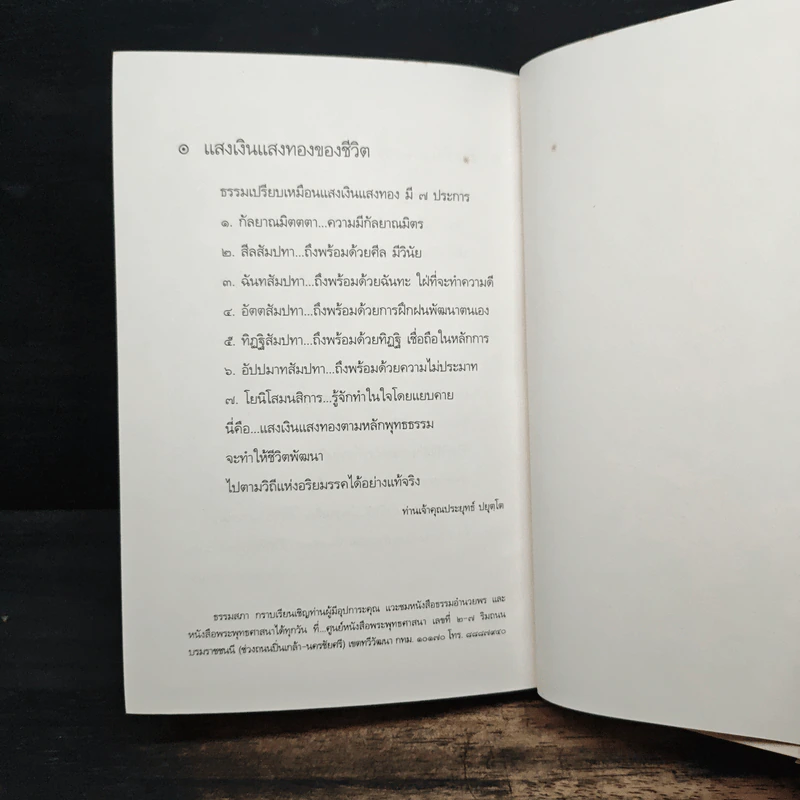 ๏ แสงเงินแสงทองของชีวิต
ธรรมเปรียบเหมือนแสงเงินแสงทอง มี ๗ ประการ
๑. กัลยาณมิตตตา...ความมีกัลยาณมิตร
๒. สีลสัมปทา...ถึงพร้อมด้วยศีล มีวินัย
๓. ฉันทสัมปทา...ถึงพร้อมด้วยฉันทะ ใฝ่ที่จะทำความดี
๔. อัตตสัมปทา...ถึงพร้อมด้วยการฝึกฝนพัฒนาตนเอง
๕. ทิฏฐิสัมปทา...ถึงพร้อมด้วยทิฏฐิ เชื่อถือในหลักการ
๖. อัปปมาทสัมปทา...ถึงพร้อมด้วยความไม่ประมาท
๗. โยนิโสมนสิการ...รู้จักทำในใจโดยแยบคาย
นี่คือ...แสงเงินแสงทองตามหลักพุทธธรรม
จะทำให้ชีวิตพัฒนา
ไปตามวิถีแห่งอริยมรรคได้อย่างแท้จริง
ท่านเจ้าคุณประยุทธ์ ปยุตฺโต
ธรรมสภา กราบเรียนเชิญท่านผู้มีอุปการะคุณ แวะชมหนังสือธรรมอำนวยพร และ
หนังสือพระพุทธศาสนาได้ทุกวัน ที่...ศูนย์หนังสือพระพุทธศาสนา เลขที่ ๒-๗ ริมถนน
บรมราชชนนี (ช่วงถนนปิ่นเกล้า-นครชัยศรี) เขตทวีวัฒนา กทม. ๑๐๑๗๐ โทร. ๘๘๘๗๙๔๐